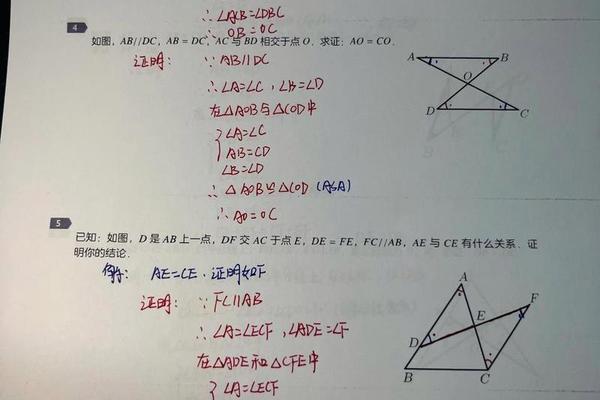 ∴ ∠ACB=∠DBC
∴ OB=OC
4
如图，AB//DC，AB=DC，AC 与 BD 相交于点 O．求证：AO=CO．
证明： ∵ AB//DC
∴ ∠A=∠C，∠B=∠D
在△AOB与△COD中
∠A=∠C
AB=CD
∠B=∠D
∴ △AOB≌△COD (ASA)
∴ AO=OC
A B
O
D C
5
已知：如图，D 是 AB 上一点，DF 交 AC 于点 E，DE=FE，FC//AB，AE 与 CE 有什么关系．证
明你的结论．
AE=CE．证明如下
证明： ∵ FC//AB
∴ ∠A=∠ECF，∠ADE=∠F
在△ADE和△CFE中
∠A=∠ECF
A
F
E
D
B C